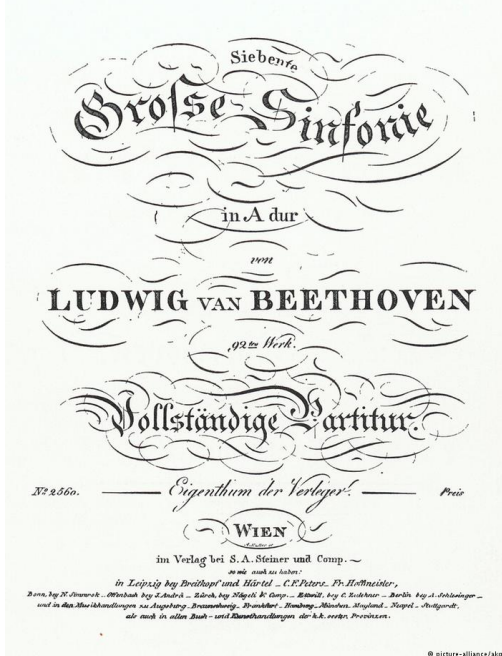 Siebente
Grosse Sinfonie
in A dur
von
LUDWIG VAN BEETHOVEN
92tes Werk.
Vollständige Partitur.
No 2560. Eigenthum der Verleger. Preis
WIEN
im Verlag bei S. A. Steiner und Comp.
so wie auch zu haben:
in Leipzig bey Breitkopf und Härtel _ C. F. Peters _ Fr. Hoffmeister,
Bonn, bey N. Simrock _ Offenbach bey J. André _ Zürch, bey Nägeli & Comp. _ bey C. Zulehner _ Berlin bey A. Schlesinger _
und in den Musikhandlungen zu Augsburg _ Braunschweig _ Frankfurt _ Hamburg _ München _ Mayland _ Neapel _ Stuttgardt,
als auch in allen Buch- und Kunsthandlungen der k.k. oestr. Provinzen.
© picture-alliance/akg